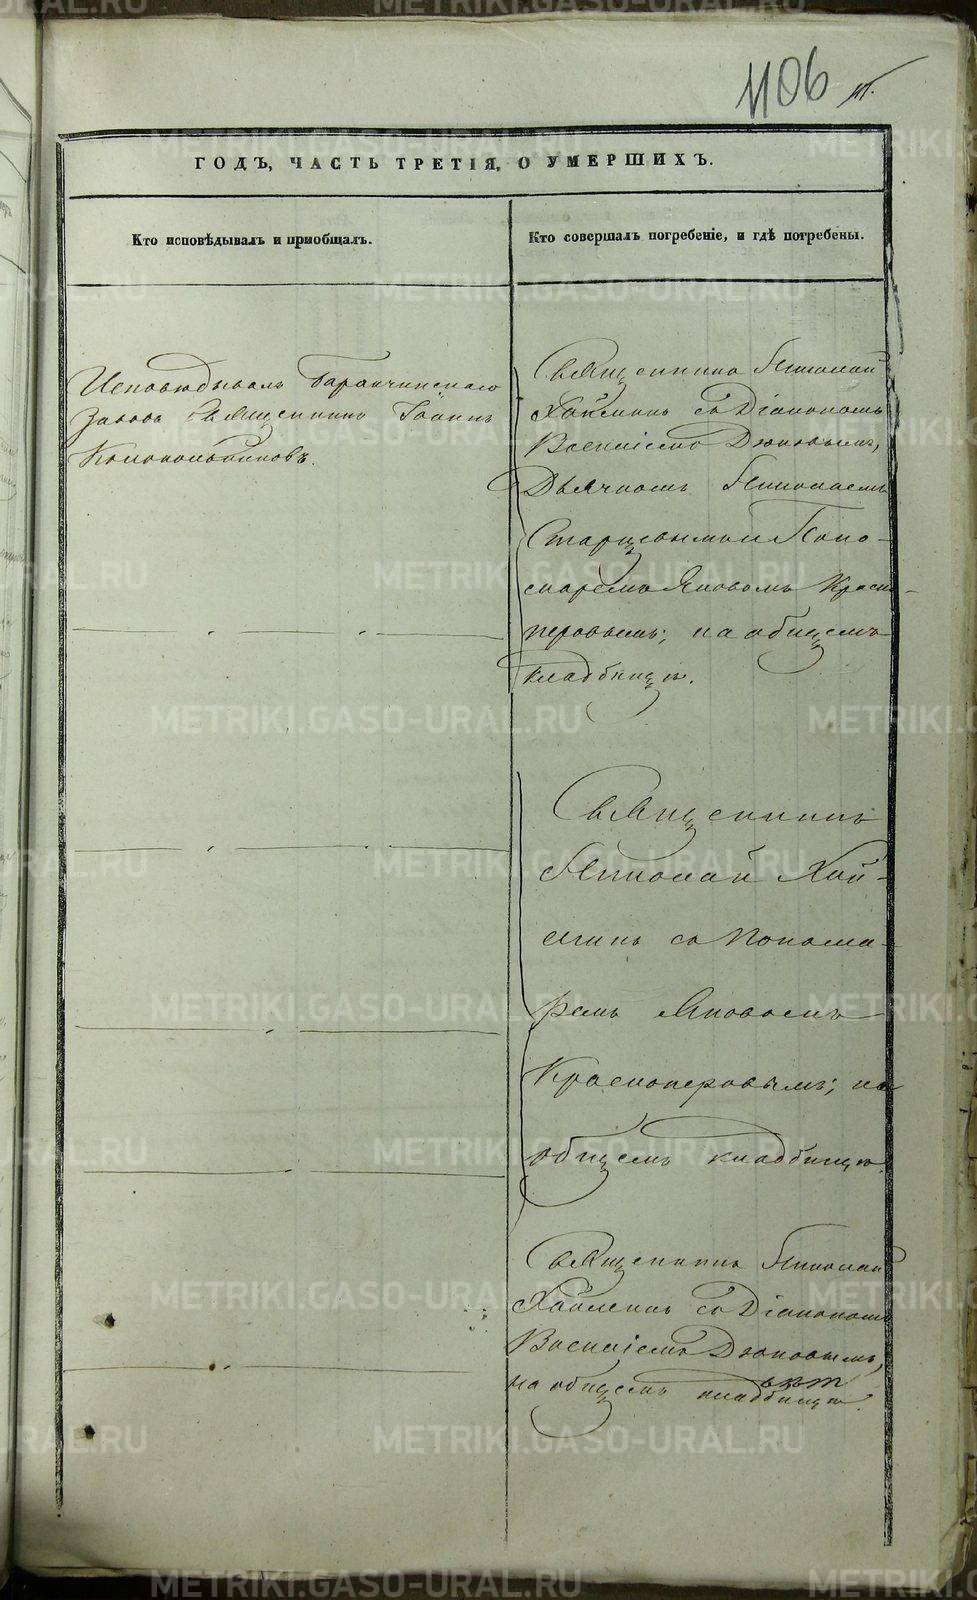 1106
ГОДЪ, ЧАСТЬ ТРЕТІЯ, О УМЕРШИХЪ.
Кто исповѣдывалъ и пріобщалъ.
Кто совершалъ погребеніе, и гдѣ погребены.
Исповѣдывалъ Баранчинскаго
Завода Священникъ Іоаннъ
Колокольниковъ.
Священникъ Николай
Хаминъ съ Діакономъ
Василіемъ Дюковымъ,
Дьячкомъ Николаемъ
Старцевымъ и Поно-
маремъ Яковомъ Красно-
перовымъ; на общемъ
кладбищѣ.
Священникъ
Николай
съ Понома-
ремъ Яковомъ
Красноперовымъ; на
общемъ кладбищѣ.
Священникъ Николай
съ Діакономъ
Василіемъ Дюковымъ,
на общемъ кладбищѣ.
METRIKI.GASO-URAL.RU